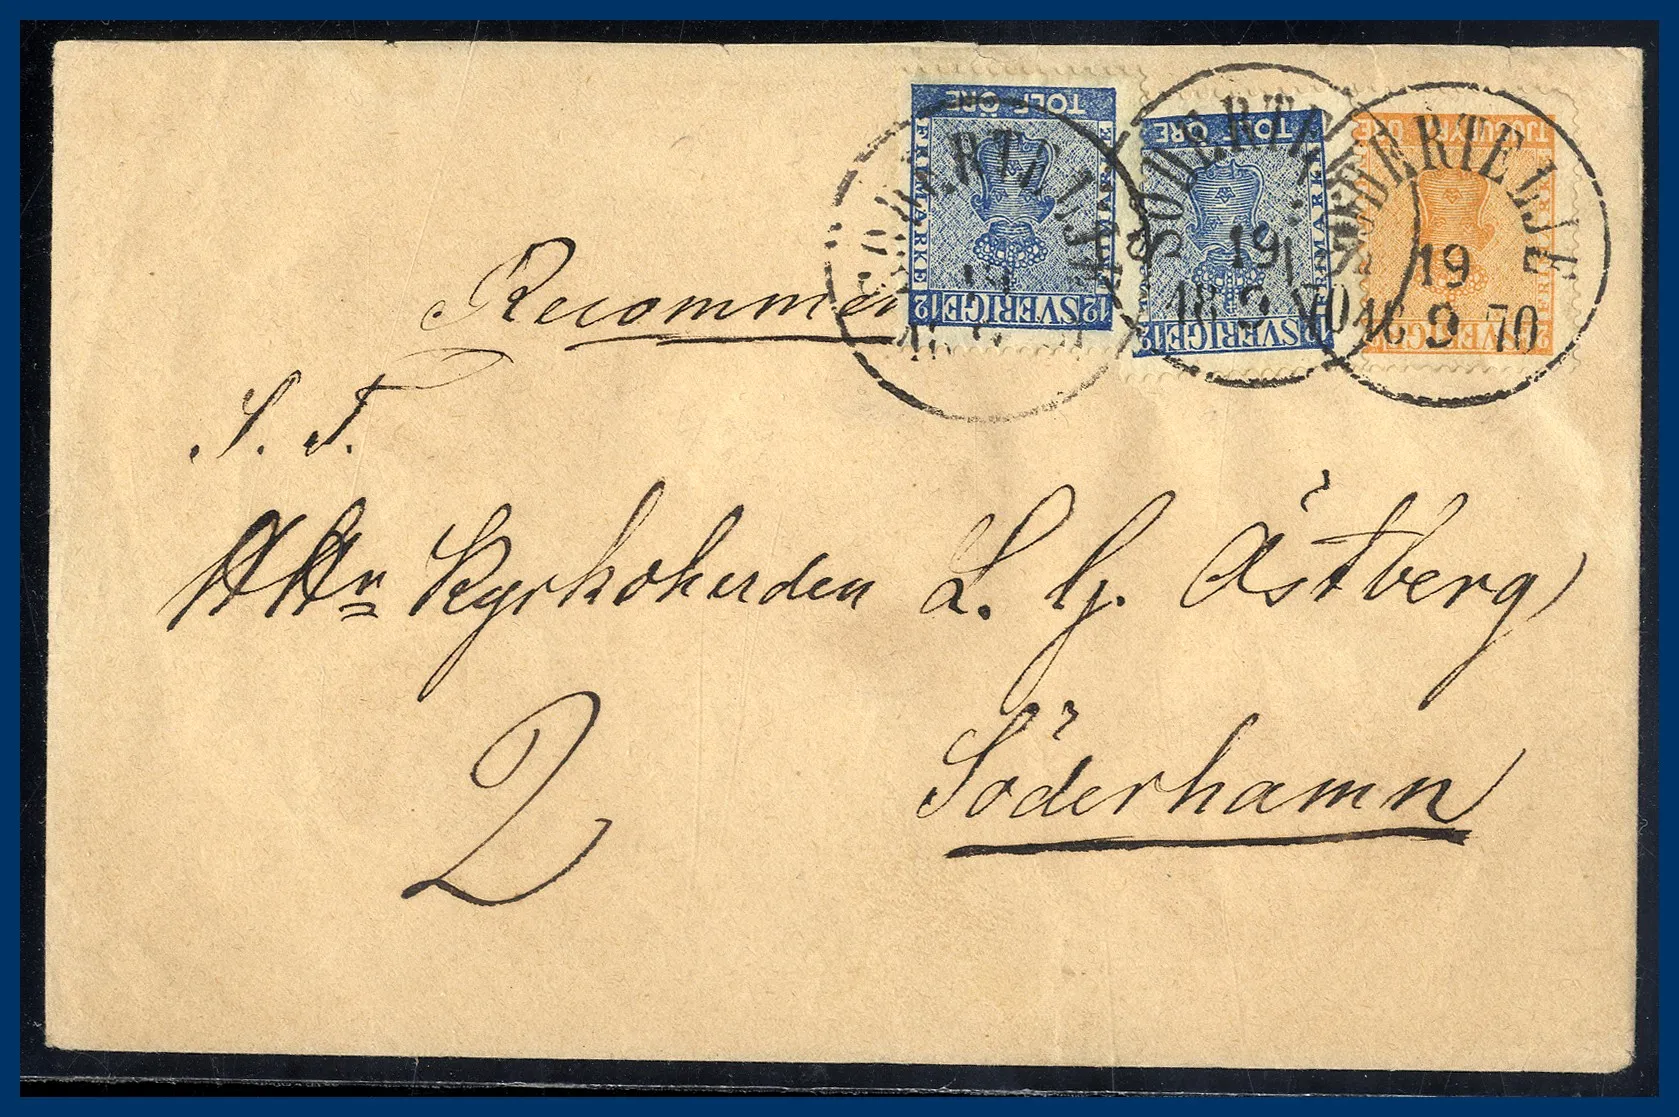 TOLF ÖRE
FRIMARKE
12 SVERIGE 12
TOLF ÖRE
FRIMARKE
12 SVERIGE 12
TJUGUFYRA ÖRE
SVERIGE
SÖDERTELJE
SÖDERTELJE
19
SÖDERTELJE
19
9 70
Recommen
S. T.
Kyrkoherden L. G. Östberg
2
Söderhamn